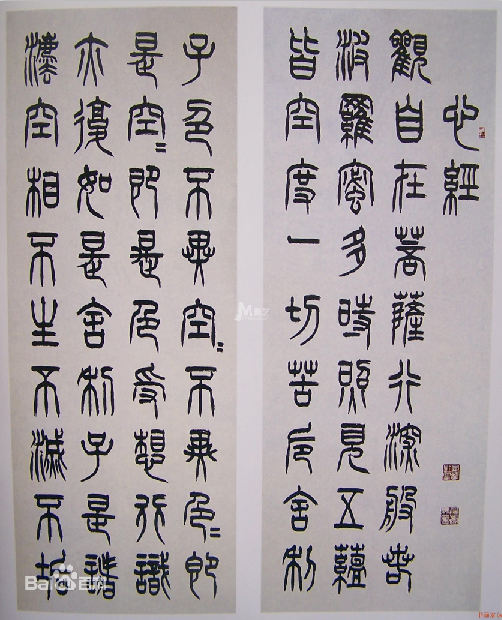 心經
觀自在菩薩行深般若
波羅蜜多時照見五蘊
皆空度一切苦厄舍利
子色不異空〻不異色〻即
是空〻即是色受想行識
亦復如是舍利子是諸
灋空相不生不滅不垢
Bai百科